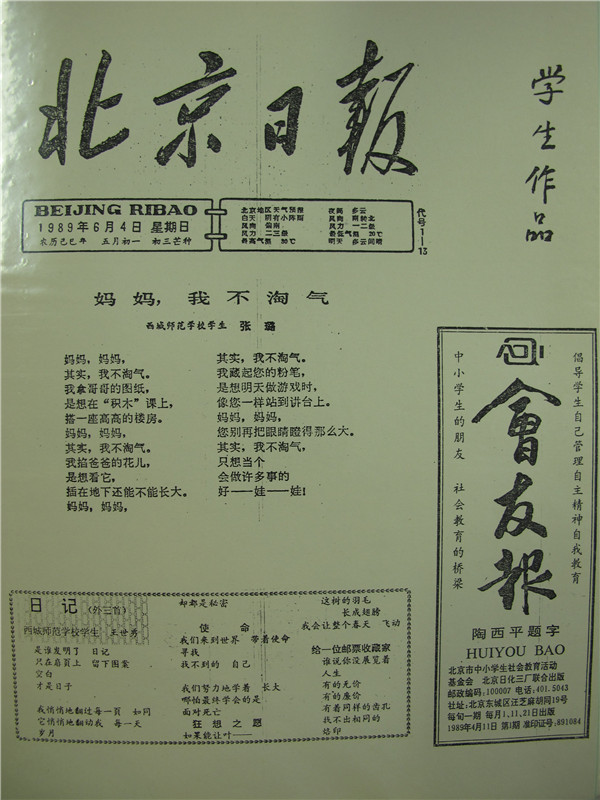 北京日报
学生作品
BEIJING RIBAO
1989年6月4日 星期日
农历己巳年 五月初一 初三芒种
北京地区天气预报
白天 阴有小阵雨
风向 偏南
风力 二三级
最高气温 30℃
夜间 多云
风向 南转北
风力 一二级
最低气温 20℃
明天 多云间晴
代号1—13
妈妈，我不淘气
西城师范学校学生 张璐
妈妈，妈妈，
其实，我不淘气。
我拿哥哥的图纸，
是想在“积木”课上，
搭一座高高的楼房。
妈妈，妈妈，
其实，我不淘气。
我掐爸爸的花儿，
是想看它，
插在地下还能不能长大。
妈妈，妈妈，
其实，我不淘气。
我藏起您的粉笔，
是想明天做游戏时，
像您一样站到讲台上。
妈妈，妈妈，
您别再把眼睛瞪得那么大。
其实，我不淘气，
只想当个
会做许多事的
好——娃——娃！
日记（外三首）
西城师范学校学生 王世秀
是谁发明了 日记
只在扉頁上 留下图案
空白
才是日子
我悄悄地翻过每一頁 如同
它悄悄地翻动我 每一天
岁月
却都是秘密
使命
我们来到世界 带着使命
寻找
我不到的 自己
我们努力地学着 长大
哪怕最终学会的是
面对死亡
狂想之愿
如果能让叶——
这树的羽毛
长成翅膀
我会让整个春天 飞动
给一位邮票收藏家
谁说你没展览着
人生
有的无价
有的廉价
有着同样的齿孔
找不出相同的
烙印
倡导学生自己管理自主精神自我教育
會友報
中小学生的朋友 社会教育的桥梁
陶西平题字
HUIYOU BAO
北京市中小学生社会教育活动
基金会 北京日化三厂联合出版
邮政编码：100007 电话：401.5043
社址：北京东城区汪芝麻胡同19号
每旬一期 每月1,11,21日出版
1989年4月11日 第1期 准印证号：891084